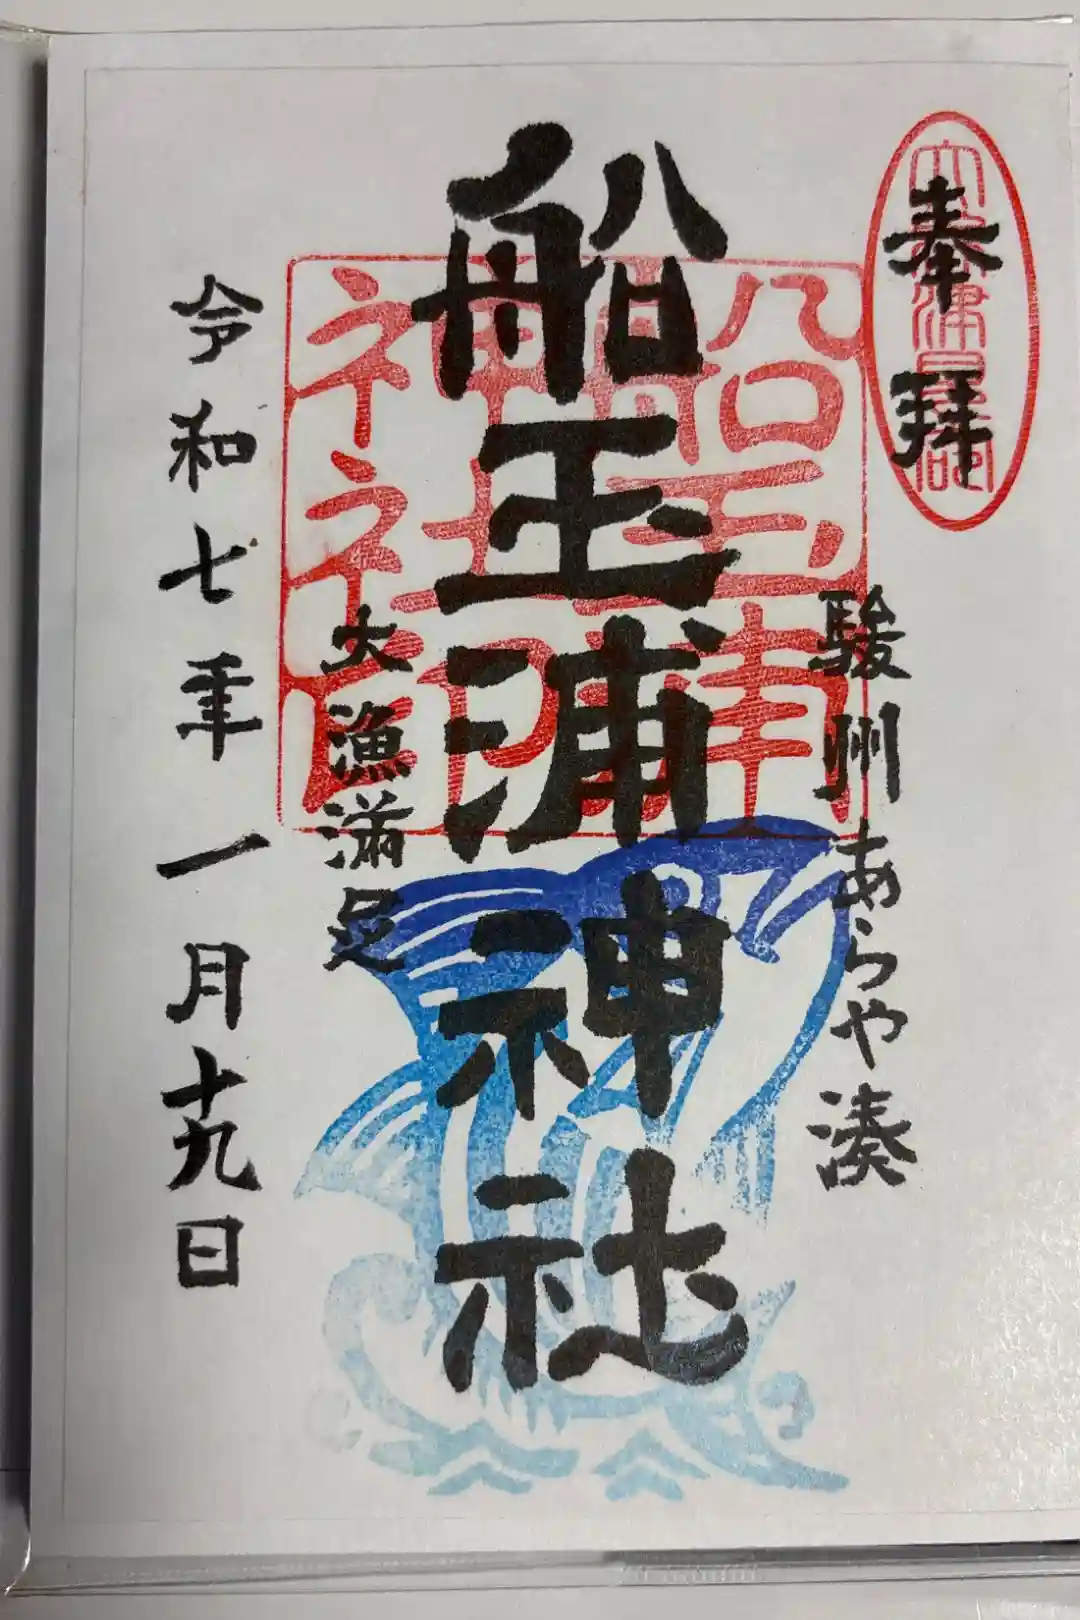 奉拝
駿州あらや湊
船玉浦神社
大漁満足
令和七年一月十九日
船玉浦
神社